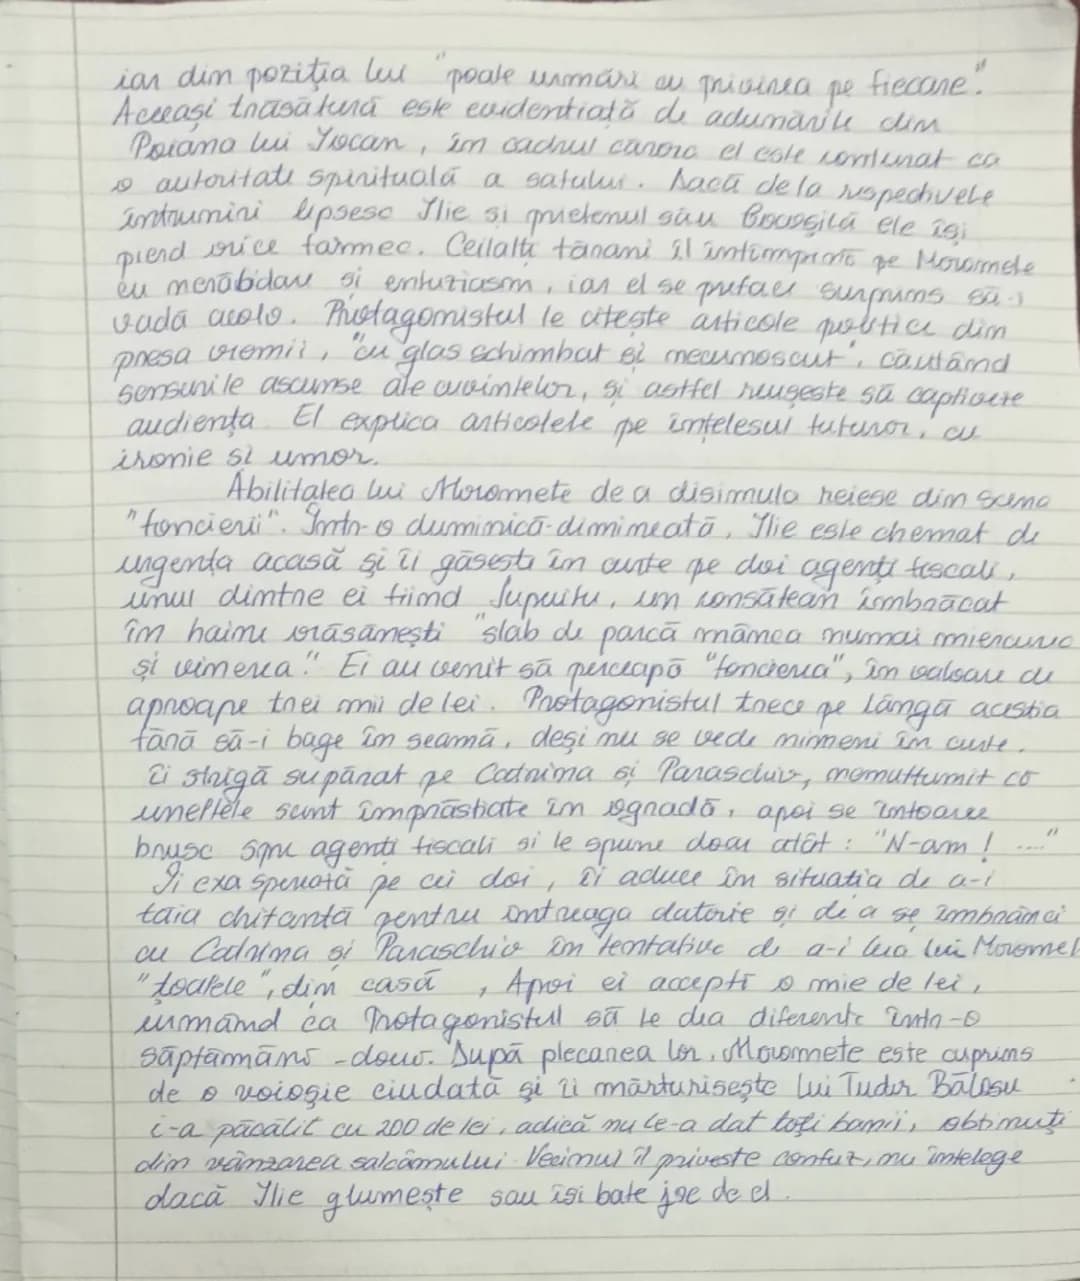 iar din poziția lui "poate urmări cu privirea pe fiecare".
Aceeași trăsătură este evidențiată de adunările din
Poiana lui Iocan, în cadrul cărora el este conturat ca
o autoritate spirituală a satului. Dacă de la respectivele
întruniri lipsesc Ilie si prietenul său Cocoșilă ele își
pierd orice farmec. Ceilalți tărani îl întîmpină pe Moromete
cu nerăbdare si entuziasm, iar el se preface surprins să-i
vadă acolo. Protagonistul le citește articole politice din
presa vremii, "cu glas schimbat și necunoscut", căutând
sensurile ascunse ale cuvintelor, și astfel reușeste să captiveze
audiența. El explica articolele pe înțelesul tuturor, cu
ironie si umor.
Abilitatea lui Moromete de a disimula reiese din scena
"foncierii". Într-o duminică-dimineată, Ilie este chemat de
urgența acasă și îi găsește în curte pe doi agenți fiscali,
unul dintre ei fiind Jupuitu, un consătean îmbrăcat
în haine orăsănești "slab de parcă mânca numai miercurea
și vinerea." Ei au venit să perceapă "foncierea", în valoare de
aproape trei mii de lei. Protagonistul trece pe lângă acestia
fără să-i bage în seamă, deși nu se vede nimeni în curte.
Ei strigă supărat pe Catrina și Paraschiv, nemultumit că
uneltele sunt împrăstiate în ogradă, apoi se întoarce
brusc spre agenți fiscali si le spune doar atât: "N-am! ...."
Îi exasperată pe cei doi, îi aduce în situatia de a-i
taia chitantă pentru întreaga datorie și de a se îmbrânci
cu Catrina si Paraschiv în tentative de a-i lua lui Moromet
"țoalele", din casă , Apoi ei acceptă o mie de lei,
urmând ca Protagonistul să le dea diferenta într-o
săptămână-două. După plecarea lor, Moromete este cuprins
de o voioșie ciudată și îi mărturisește lui Tudor Bălosu
i-a păcălit cu 200 de lei, adică nu le-a dat toți banii, obtinuți
din vânzarea salcâmului. Vecinul îl priveste confuz, nu întelege
dacă Ilie glumește sau își bate joc de el.